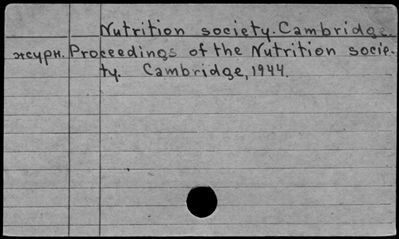 Nutrition society. Cambridge.
журн. Proceedings of the Nutrition socie-
ty. Cambridge, 1944.